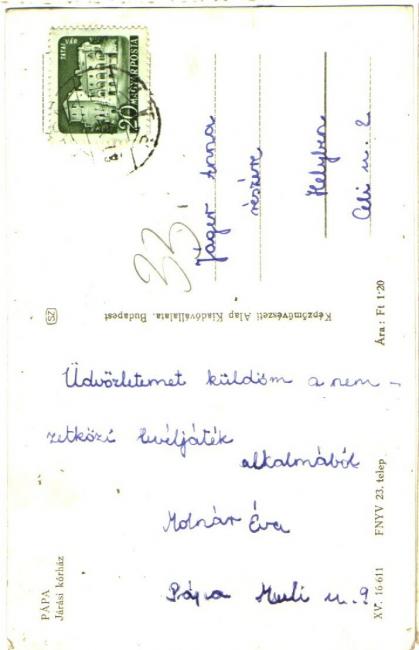 TATAI VÁR
20 MAGYAR POSTA
33
Jáger Anna
részére
Helyben
Celi u. 2
Képzőművészeti Alap Kiadóvállalata, Budapest
SZ
Ára: Ft 1·20
Üdvözletemet küldöm a nem-
zetközi levéljáték
alkalmából
Molnár Éva
Pápa u. 9
PÁPA
Járási kórház
XV. 16-611 FNYV 23. telep